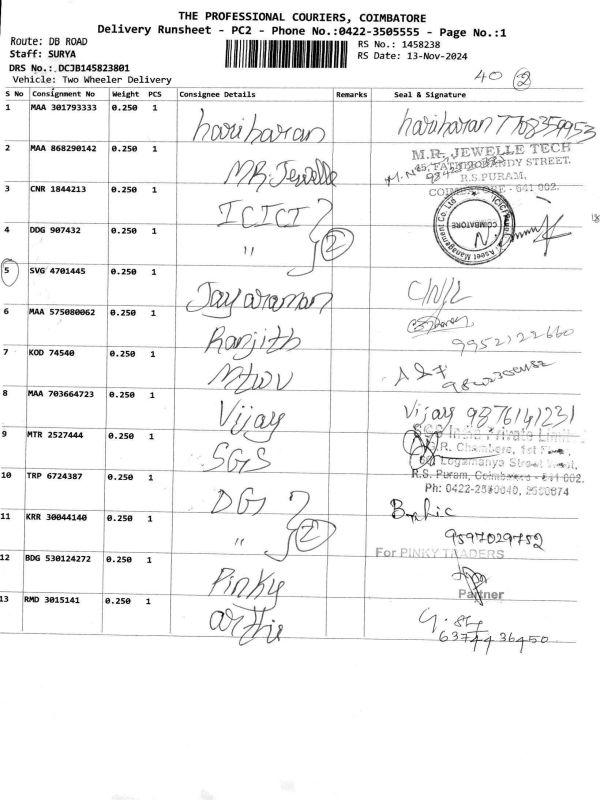 THE PROFESSIONAL COURIERS, COIMBATORE
Delivery Runsheet - PC2 - Phone No.:0422-3505555 - Page No.:1
Route: DB ROAD
RS No.: 1458238
Staff: SURYA
RS Date: 13-Nov-2024
DRS No.:.DCJB145823801
Vehicle: Two Wheeler Delivery
40 2
S No Consignment No Weight PCS Consignee Details Remarks Seal & Signature
1 MAA 301793333 0.250 1 hariharan hariharan 7708359953
2 MAA 868290142 0.250 1 MR. Jewelle M.R. JEWELLE TECH
STREET,
R.S.PURAM,
COIMBATORE - 641 002.
3 CNR 1844213 0.250 1 ICICI
4 DDG 907432 0.250 1 " 2 COIMBATORE
5 SVG 4701445 0.250 1 Jayaraman C/N/L
6 MAA 575080062 0.250 1 Ranjith
9952122660
7 KOD 74540 0.250 1
8 MAA 703664723 0.250 1 Vijay Vijay 9876141231
9 MTR 2527444 0.250 1 SGS SGS India Private Limited
R. Chambers, 1st
Logamanya Street West,
R.S. Puram, Coimbatore - 641 002.
10 TRP 6724387 0.250 1 DG
11 KRR 30044140 0.250 1 " 2 9597029752
12 BDG 530124272 0.250 1 Pinky For PINKY TRADERS
Partner
13 RMD 3015141 0.250 1
6374436450